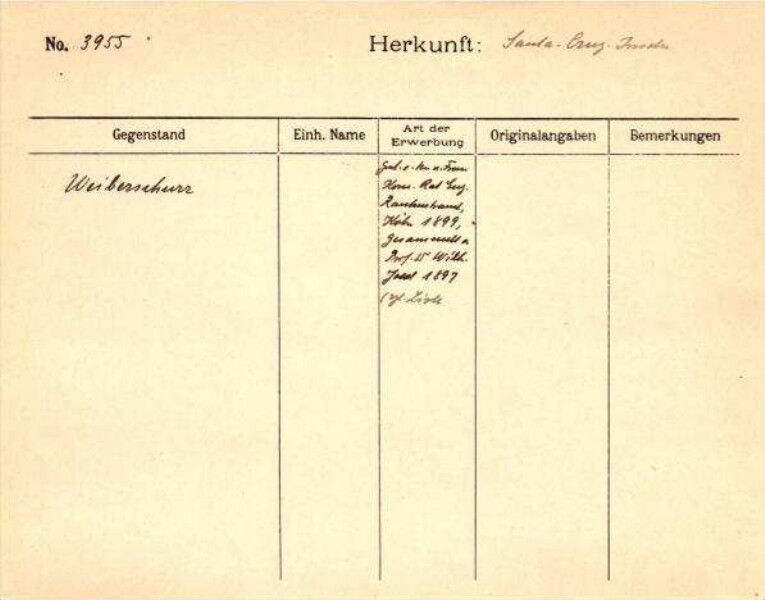 No. 3955
Herkunft: Santa-Cruz-Inseln
Gegenstand
Einh. Name
Art der Erwerbung
Originalangaben
Bemerkungen
Weiberschurz
Kom. Rat Eug.
Rautenstrauch,
Köln 1899,
Gesammelt v.
Prof. Dr Wilh.
Joest 1897
(vgl. Liste